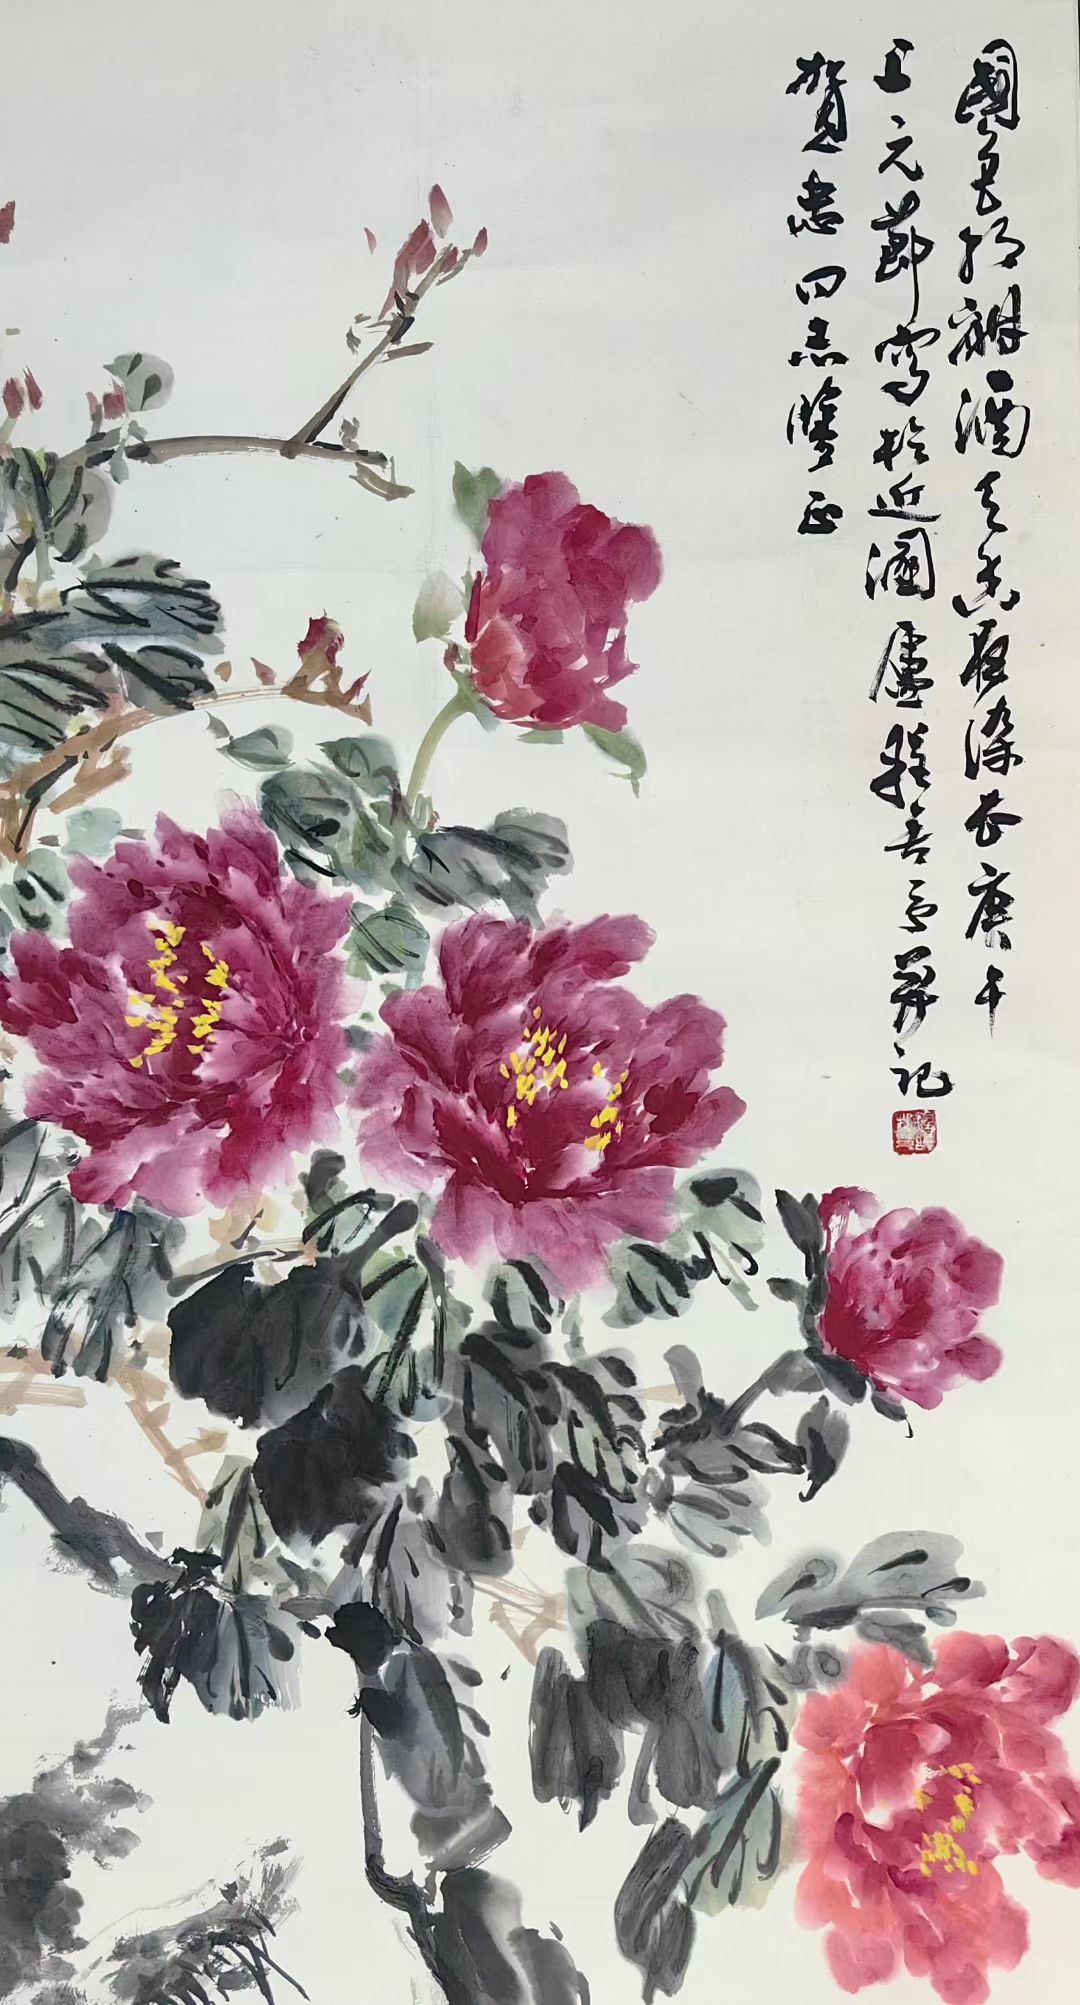 國色朝酣酒天香夜染衣庚午
上元節寫於近園廬程

賀忠同志鑒正